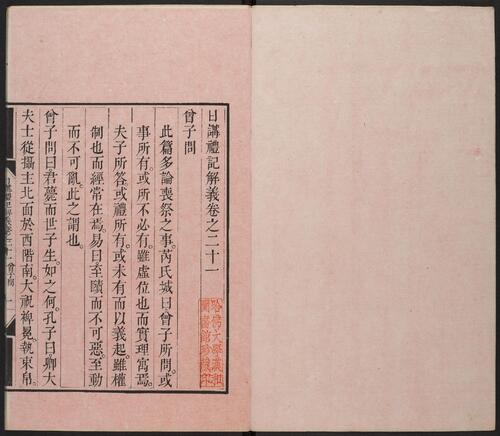 日講禮記解義卷之二十一
曾子問
此篇多論喪祭之事。芮氏城曰曾子所問。或
事所有。或所不必有。雖虛位也而實理寓焉。
夫子所答。或禮所有。或未有而以義起。雖權
制也而經常在焉。易曰至賾而不可惡。至動
而不可亂。此之謂也。
曾子問曰君薨而世子生。如之何。孔子曰卿大
夫士從攝主北面於西階南。大祝裨冕。執束帛。
哈佛大學漢和
圖書館珍藏印